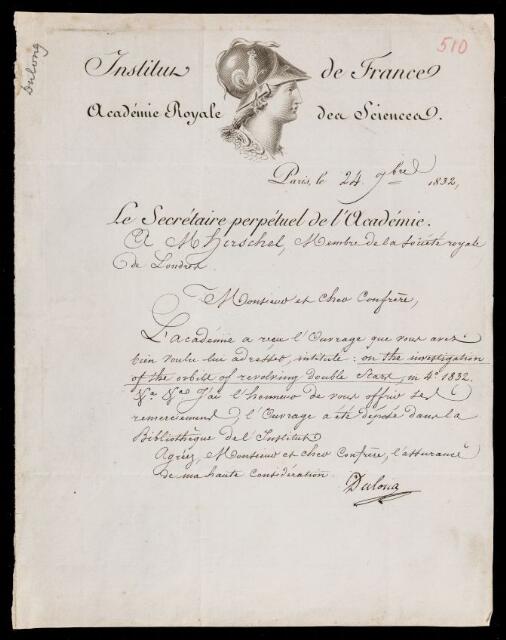 Dulong
510
Institut de France
Académie Royale des Sciences.
Paris, le 24 9bre 1832,
Le Secrétaire perpétuel de l'Académie.
A Mr Herschel, Membre de la Société royale
de Londres.
Monsieur et cher Confrère,
L'académie a reçu l'Ouvrage que vous avez
bien voulu lui adresser, intitulé: on the investigation
of the orbits of revolving double Stars, in 4° 1832.
&a &a J'ai l'honneur de vous offrir ses
remerciements; l'Ouvrage a été déposé dans la
Bibliothèque de l'Institut
Agréez, Monsieur et cher Confrère, l'assurance
de ma haute Considération.
Dulong